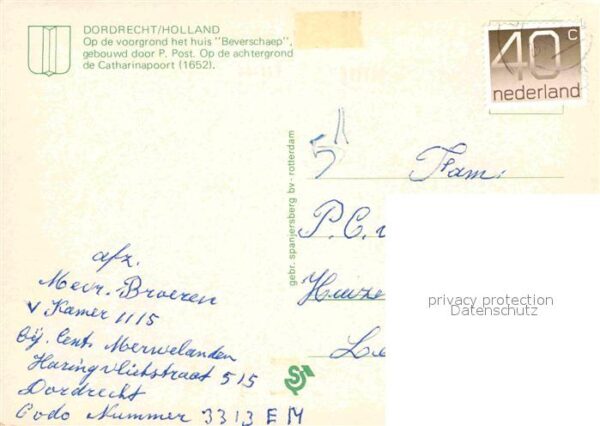 DORDRECHT/HOLLAND
Op de voorgrond het huis "Beverschaep",
gebouwd door P. Post. Op de achtergrond
de Catharinapoort (1652).
40c
nederland
gebr. spanjersberg bv - rotterdam
Fam.
P.C.
privacy protection
Datenschutz
afz.
Mevr. Broeren
Kamer 1115
Bij. Cent. Merwelanden
Haringvlietstraat 515
Dordrecht
Codo Nummer 3313 EM